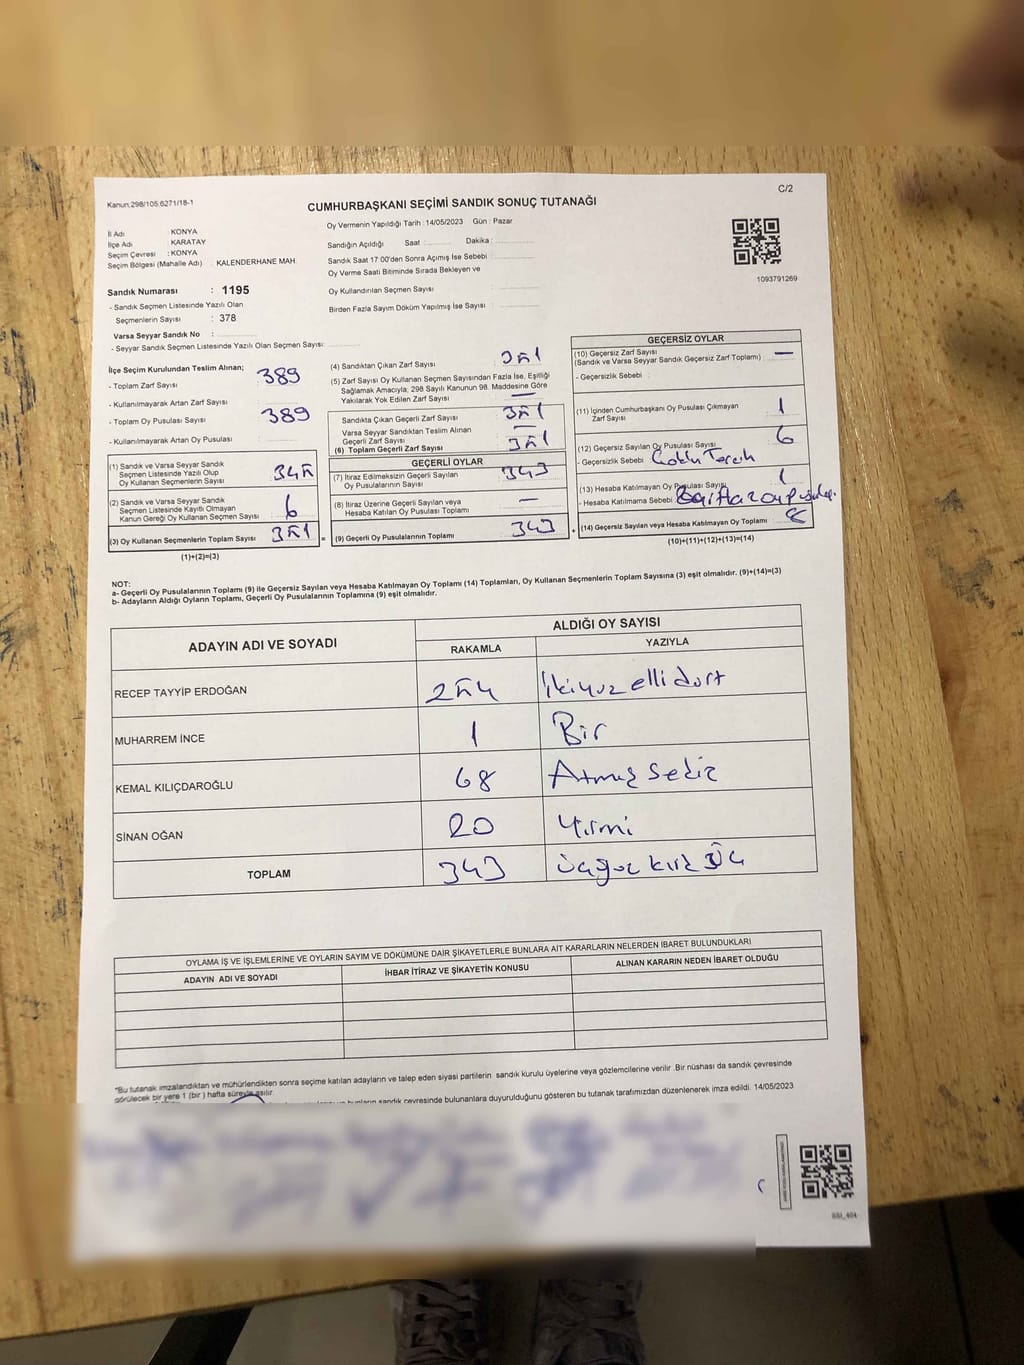 Kanun,298/105,6271/18-1
C/2
CUMHURBAŞKANI SEÇİMİ SANDIK SONUÇ TUTANAĞI
İl Adı : KONYA
İlçe Adı : KARATAY
Seçim Çevresi : KONYA
Seçim Bölgesi (Mahalle Adı) : KALENDERHANE MAH.
Oy Vermenin Yapıldığı Tarih : 14/05/2023 Gün : Pazar
Sandığın Açıldığı Saat : Dakika :
Sandık Saat 17:00'den Sonra Açmış İse Sebebi :
Oy Verme Saati Bitiminde Sırada Bekleyen ve
Oy Kullandırılan Seçmen Sayısı :
Birden Fazla Sayım Döküm Yapılmış İse Sayısı :
1093791269
Sandık Numarası : 1195
- Sandık Seçmen Listesinde Yazılı Olan
Seçmenlerin Sayısı : 378
Varsa Seyyar Sandık No :
- Seyyar Sandık Seçmen Listesinde Yazılı Olan Seçmen Sayısı:
İlçe Seçim Kurulundan Teslim Alınan;
- Toplam Zarf Sayısı : 389
- Kullanılmayarak Artan Zarf Sayısı :
- Toplam Oy Pusulası Sayısı : 389
- Kullanılmayarak Artan Oy Pusulası :
(1) Sandık ve Varsa Seyyar Sandık
Seçmen Listesinde Yazılı Olup
Oy Kullanan Seçmenlerin Sayısı 345
(2) Sandık ve Varsa Seyyar Sandık
Seçmen Listesinde Kayıtlı Olmayan
Kanun Gereği Oy Kullanan Seçmen Sayısı 6
(3) Oy Kullanan Seçmenlerin Toplam Sayısı 351
(1)+(2)=(3)
(4) Sandıktan Çıkan Zarf Sayısı : 351
(5) Zarf Sayısı Oy Kullanan Seçmen Sayısından Fazla İse, Eşitliği
Sağlamak Amacıyla; 298 Sayılı Kanunun 98. Maddesine Göre
Yakılarak Yok Edilen Zarf Sayısı : —
Sandıkta Çıkan Geçerli Zarf Sayısı 351
Varsa Seyyar Sandıktan Teslim Alınan
Geçerli Zarf Sayısı —
(6) Toplam Geçerli Zarf Sayısı 351
GEÇERLİ OYLAR
(7) İtiraz Edilmeksizin Geçerli Sayılan
Oy Pusulalarının Sayısı 343
(8) İtiraz Üzerine Geçerli Sayılan veya
Hesaba Katılan Oy Pusulası Toplamı —
(9) Geçerli Oy Pusulalarının Toplamı 343
GEÇERSİZ OYLAR
(10) Geçersiz Zarf Sayısı
(Sandık ve Varsa Seyyar Sandık Geçersiz Zarf Toplamı) : —
- Geçersizlik Sebebi :
(11) İçinden Cumhurbaşkanı Oy Pusulası Çıkmayan
Zarf Sayısı 1
(12) Geçersiz Sayılan Oy Pusulası Sayısı 6
- Geçersizlik Sebebi Çoklu Tercih
(13) Hesaba Katılmayan Oy Pusulası Sayısı 1
- Hesaba Katılmama Sebebi
(14) Geçersiz Sayılan veya Hesaba Katılmayan Oy Toplamı 8
(10)+(11)+(12)+(13)=(14)
NOT:
a- Geçerli Oy Pusulalarının Toplamı (9) ile Geçersiz Sayılan veya Hesaba Katılmayan Oy Toplamı (14) Toplamları, Oy Kullanan Seçmenlerin Toplam Sayısına (3) eşit olmalıdır. (9)+(14)=(3)
b- Adayların Aldığı Oyların Toplamı, Geçerli Oy Pusulalarının Toplamına (9) eşit olmalıdır.
ADAYIN ADI VE SOYADI
ALDIĞI OY SAYISI
RAKAMLA YAZIYLA
RECEP TAYYİP ERDOĞAN 254 İkiyüz elli dört
MUHARREM İNCE 1 Bir
KEMAL KILIÇDAROĞLU 68 Atmış sekiz
SİNAN OĞAN 20 Yirmi
TOPLAM 343 üçyüz kırk üç
OYLAMA İŞ VE İŞLEMLERİNE VE OYLARIN SAYIM VE DÖKÜMÜNE DAİR ŞİKAYETLERLE BUNLARA AİT KARARLARIN NELERDEN İBARET BULUNDUKLARI
ADAYIN ADI VE SOYADI İHBAR İTİRAZ VE ŞİKAYETİN KONUSU ALINAN KARARIN NEDEN İBARET OLDUĞU
*Bu tutanak imzalandıktan ve mühürlendikten sonra seçime katılan adayların ve talep eden siyasi partilerin sandık kurulu üyelerine veya gözlemcilerine verilir .Bir nüshası da sandık çevresinde
görülecek bir yere 1 (bir ) hafta süreyle asılır.
bunların sandık çevresinde bulunanlara duyurulduğunu gösteren bu tutanak tarafımızdan düzenlenerek imza edildi. 14/05/2023